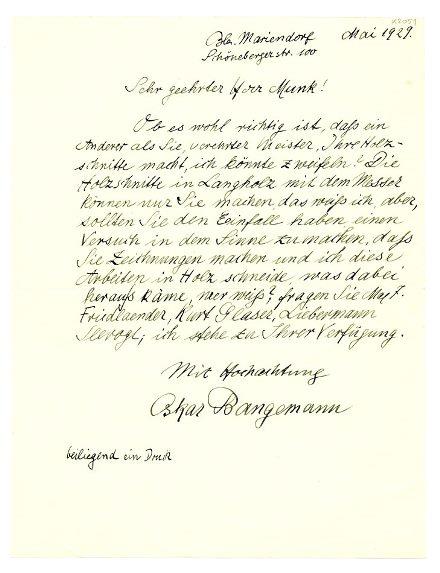 K2051
Bln. Mariendorf Mai 1929.
Schönebergerstr. 100
Sehr geehrter Herr Munk!
Ob es wohl richtig ist, daß ein
Anderer als Sie, verehrter Meister, Ihre Holz-
schnitte macht, ich könnte zweifeln! Die
Holzschnitte in Langholz mit dem Messer
können nur Sie machen das waiß ich, aber,
sollten Sie den Einfall haben einen
Versuch in dem Sinne zu machen, daß
Sie Zeichnungen machen und ich diese
Arbeiten in Holz schneide, was dabei
herauß käme, wer weiß?, fragen Sie Max J.
Friedlaender, Kurt Glaser, Liebermann
Slevogt; ich stehe zu Ihrer Verfügung.
Mit Hochachtung
Oskar Bangemann
beiliegend ein Druck